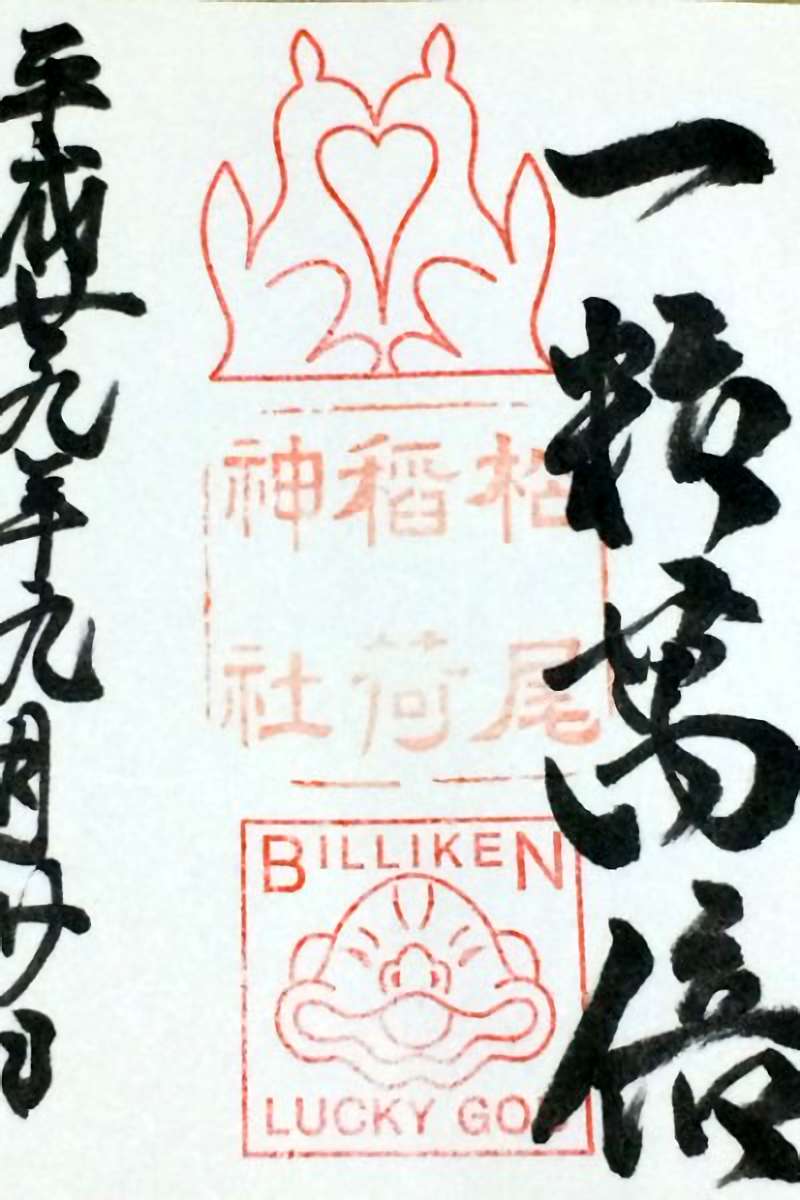 一粒萬倍
松尾
稻荷
神社
BILLIKEN
LUCKY GOD
平成廿九年九月廿日